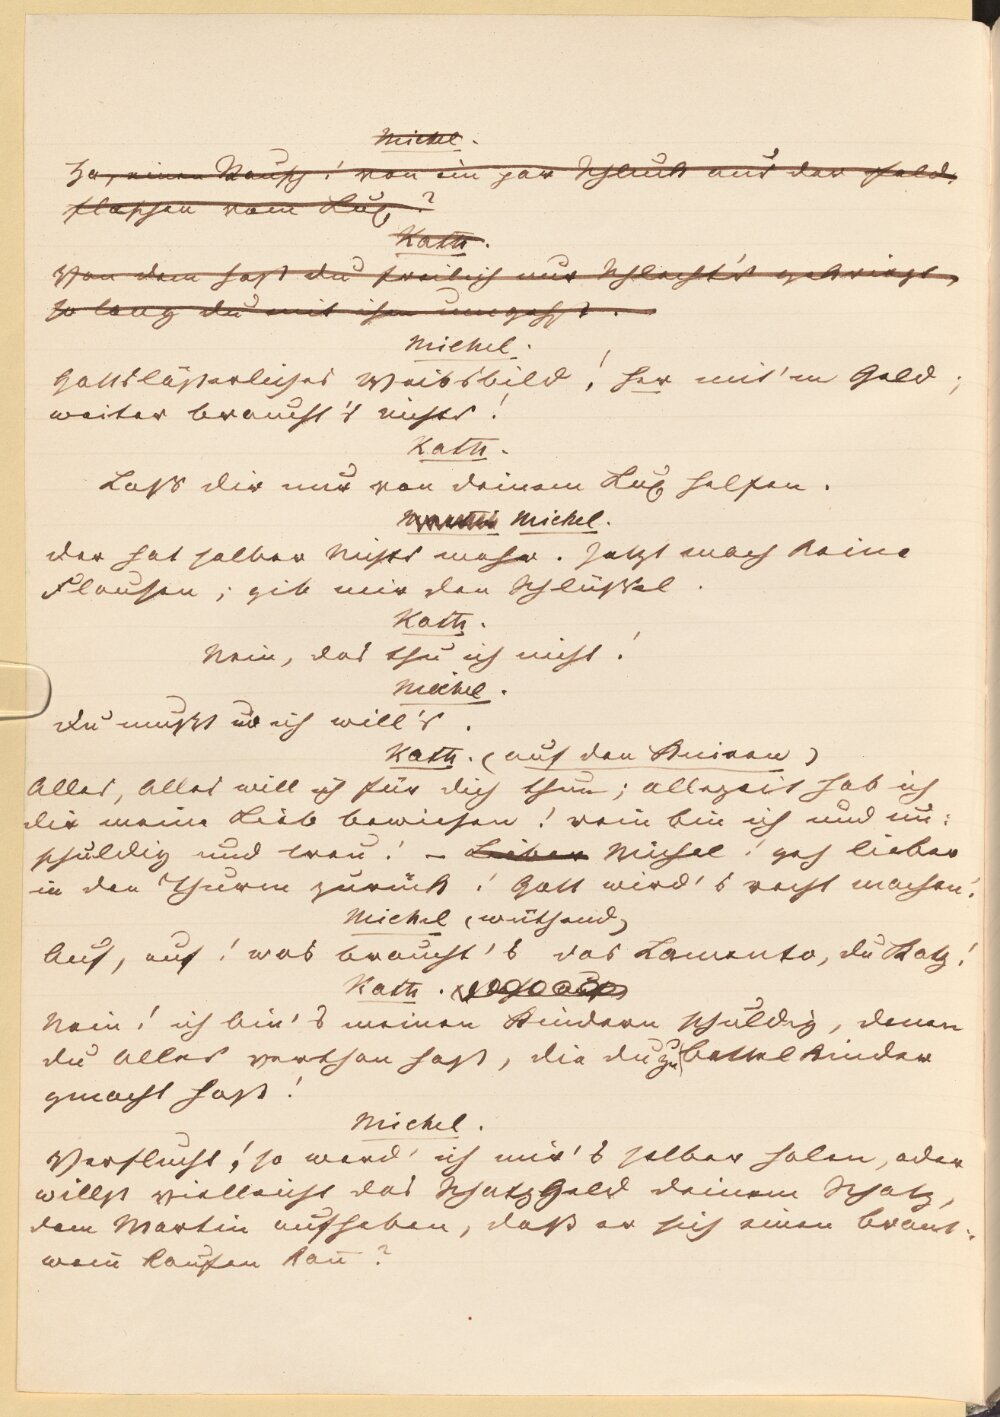 Michel.
Ja, einen Rausch! von ein par Schluk aus der Feld-
flaschen vom Lux?
Kath.
Von dem hast du freilich nur Schlecht's gekriegt,
so lang du mit ihm umgehst.
Michel.
Gottslästerliches Weibsbild! her mit'm Geld;
weiter braucht's nichts!
Kath.
Lass dir nur von deinem Lux helfen.
Michel.
der hat selber Nichts mehr. Jetzt mach keine
Flausen; gib mir den Schlüssel.
Kath.
Nein, das thu ich nicht!
Michel.
Du musst und ich will's.
Kath. (auf den Knieen)
Alles, Alles will ich für dich thun; allezeit hab ich
dir meine Lieb bewiesen! rein bin ich und un:
schuldig und treu! – Lieber Michel! geh lieber
in den Thurm zurück! Gott wird's recht machen!
Michel (wüthend)
Auf, auf! was braucht's das Lamento, du Katz!
Kath.
Nein! ich bin's meinen Kindern schuldig, denen
du Alles verthan hast, die du zu Bettelkinder
gmacht hast!
Michel.
Verflucht! so werd' ich mir's selber holen, oder
willst vielleicht das Schatzgeld deinem Schatz,
dem Martin aufheben, daß er sich einen Brant:
wein kaufen kan̄?